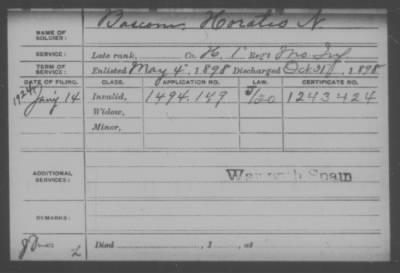 NAME OF SOLDIER: Bascom, Horatio N
SERVICE: Late rank, Co. H, 1 Reg't Mo Inf
TERM OF SERVICE: Enlisted May 4, 1898 Discharged Oct 31, 1898
DATE OF FILING. CLASS. APPLICATION NO. LAW. CERTIFICATE NO.
1924 Jan'y 14 Invalid, 1494.149 1243424
Widow,
Minor,
ADDITIONAL SERVICES: War with Spain
REMARKS:
Died , 1 , at